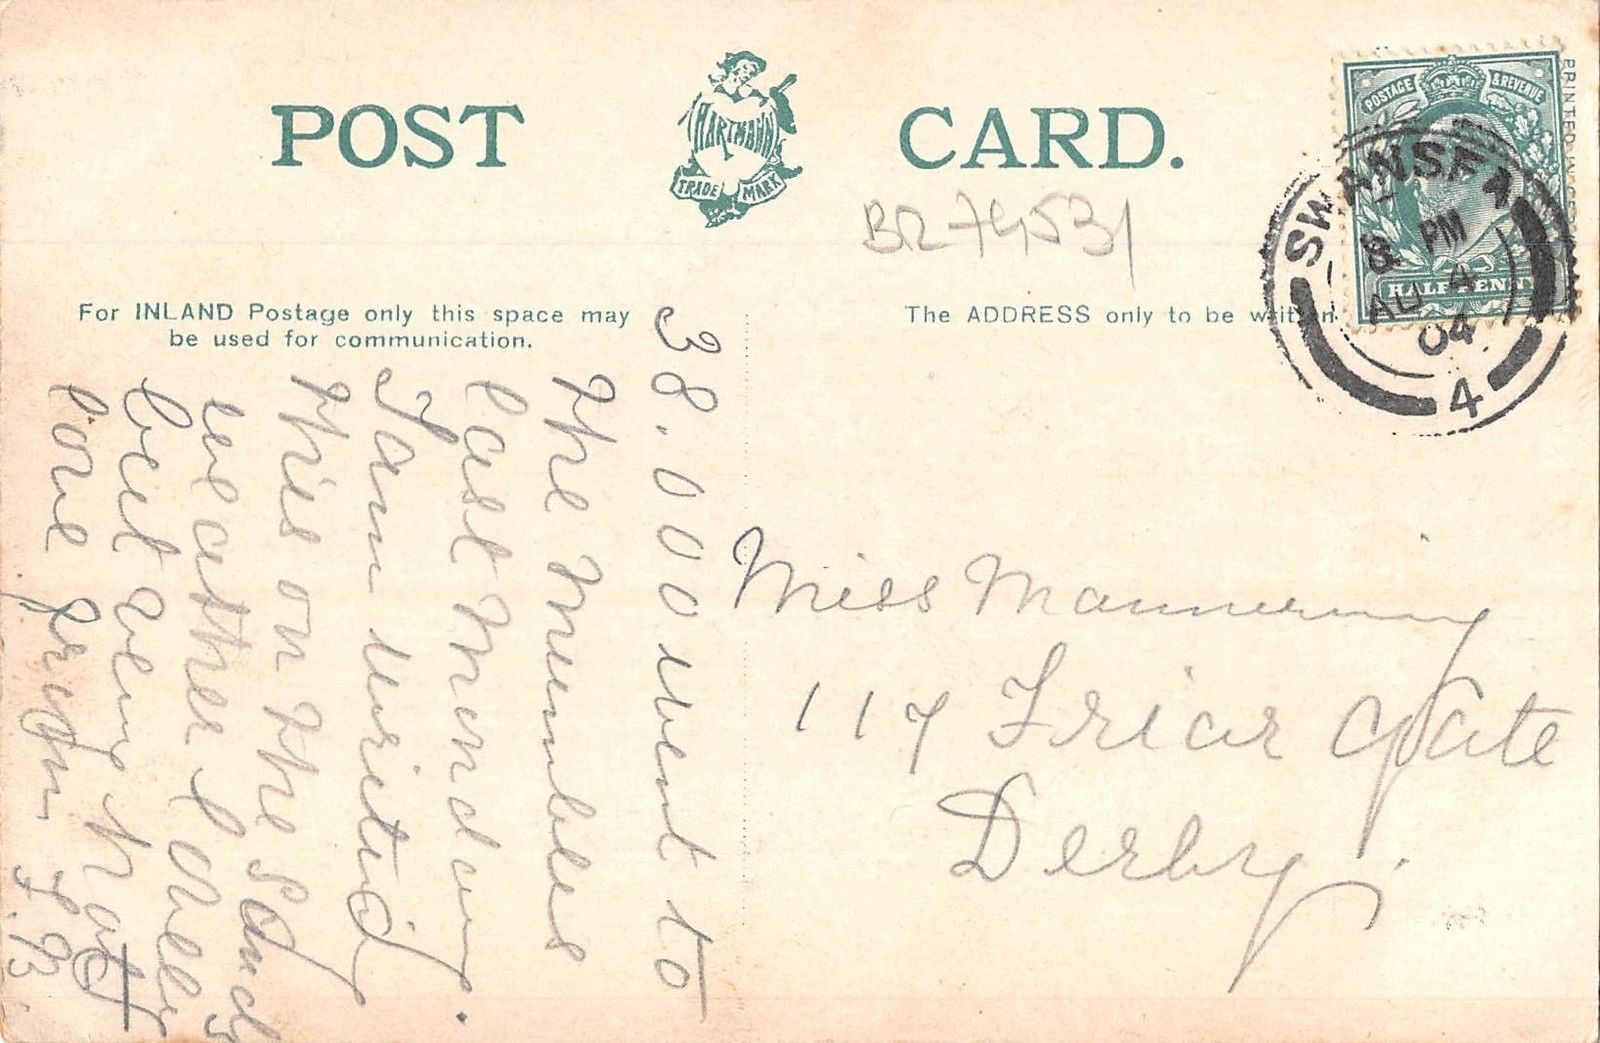 POST CARD.
HARTMANN
TRADE MARK
POSTAGE & REVENUE
HALFPENNY
SWANSEA
8 PM
AU 4
04
4
BR 74531
For INLAND Postage only this space may
be used for communication.
The ADDRESS only to be written
38.000 went to
the Mumbles
last Monday.
I am writing
this on the sands
weather lovely
but very hot
love from F.B.
Miss Mannering
117 Friar Gate
Derby